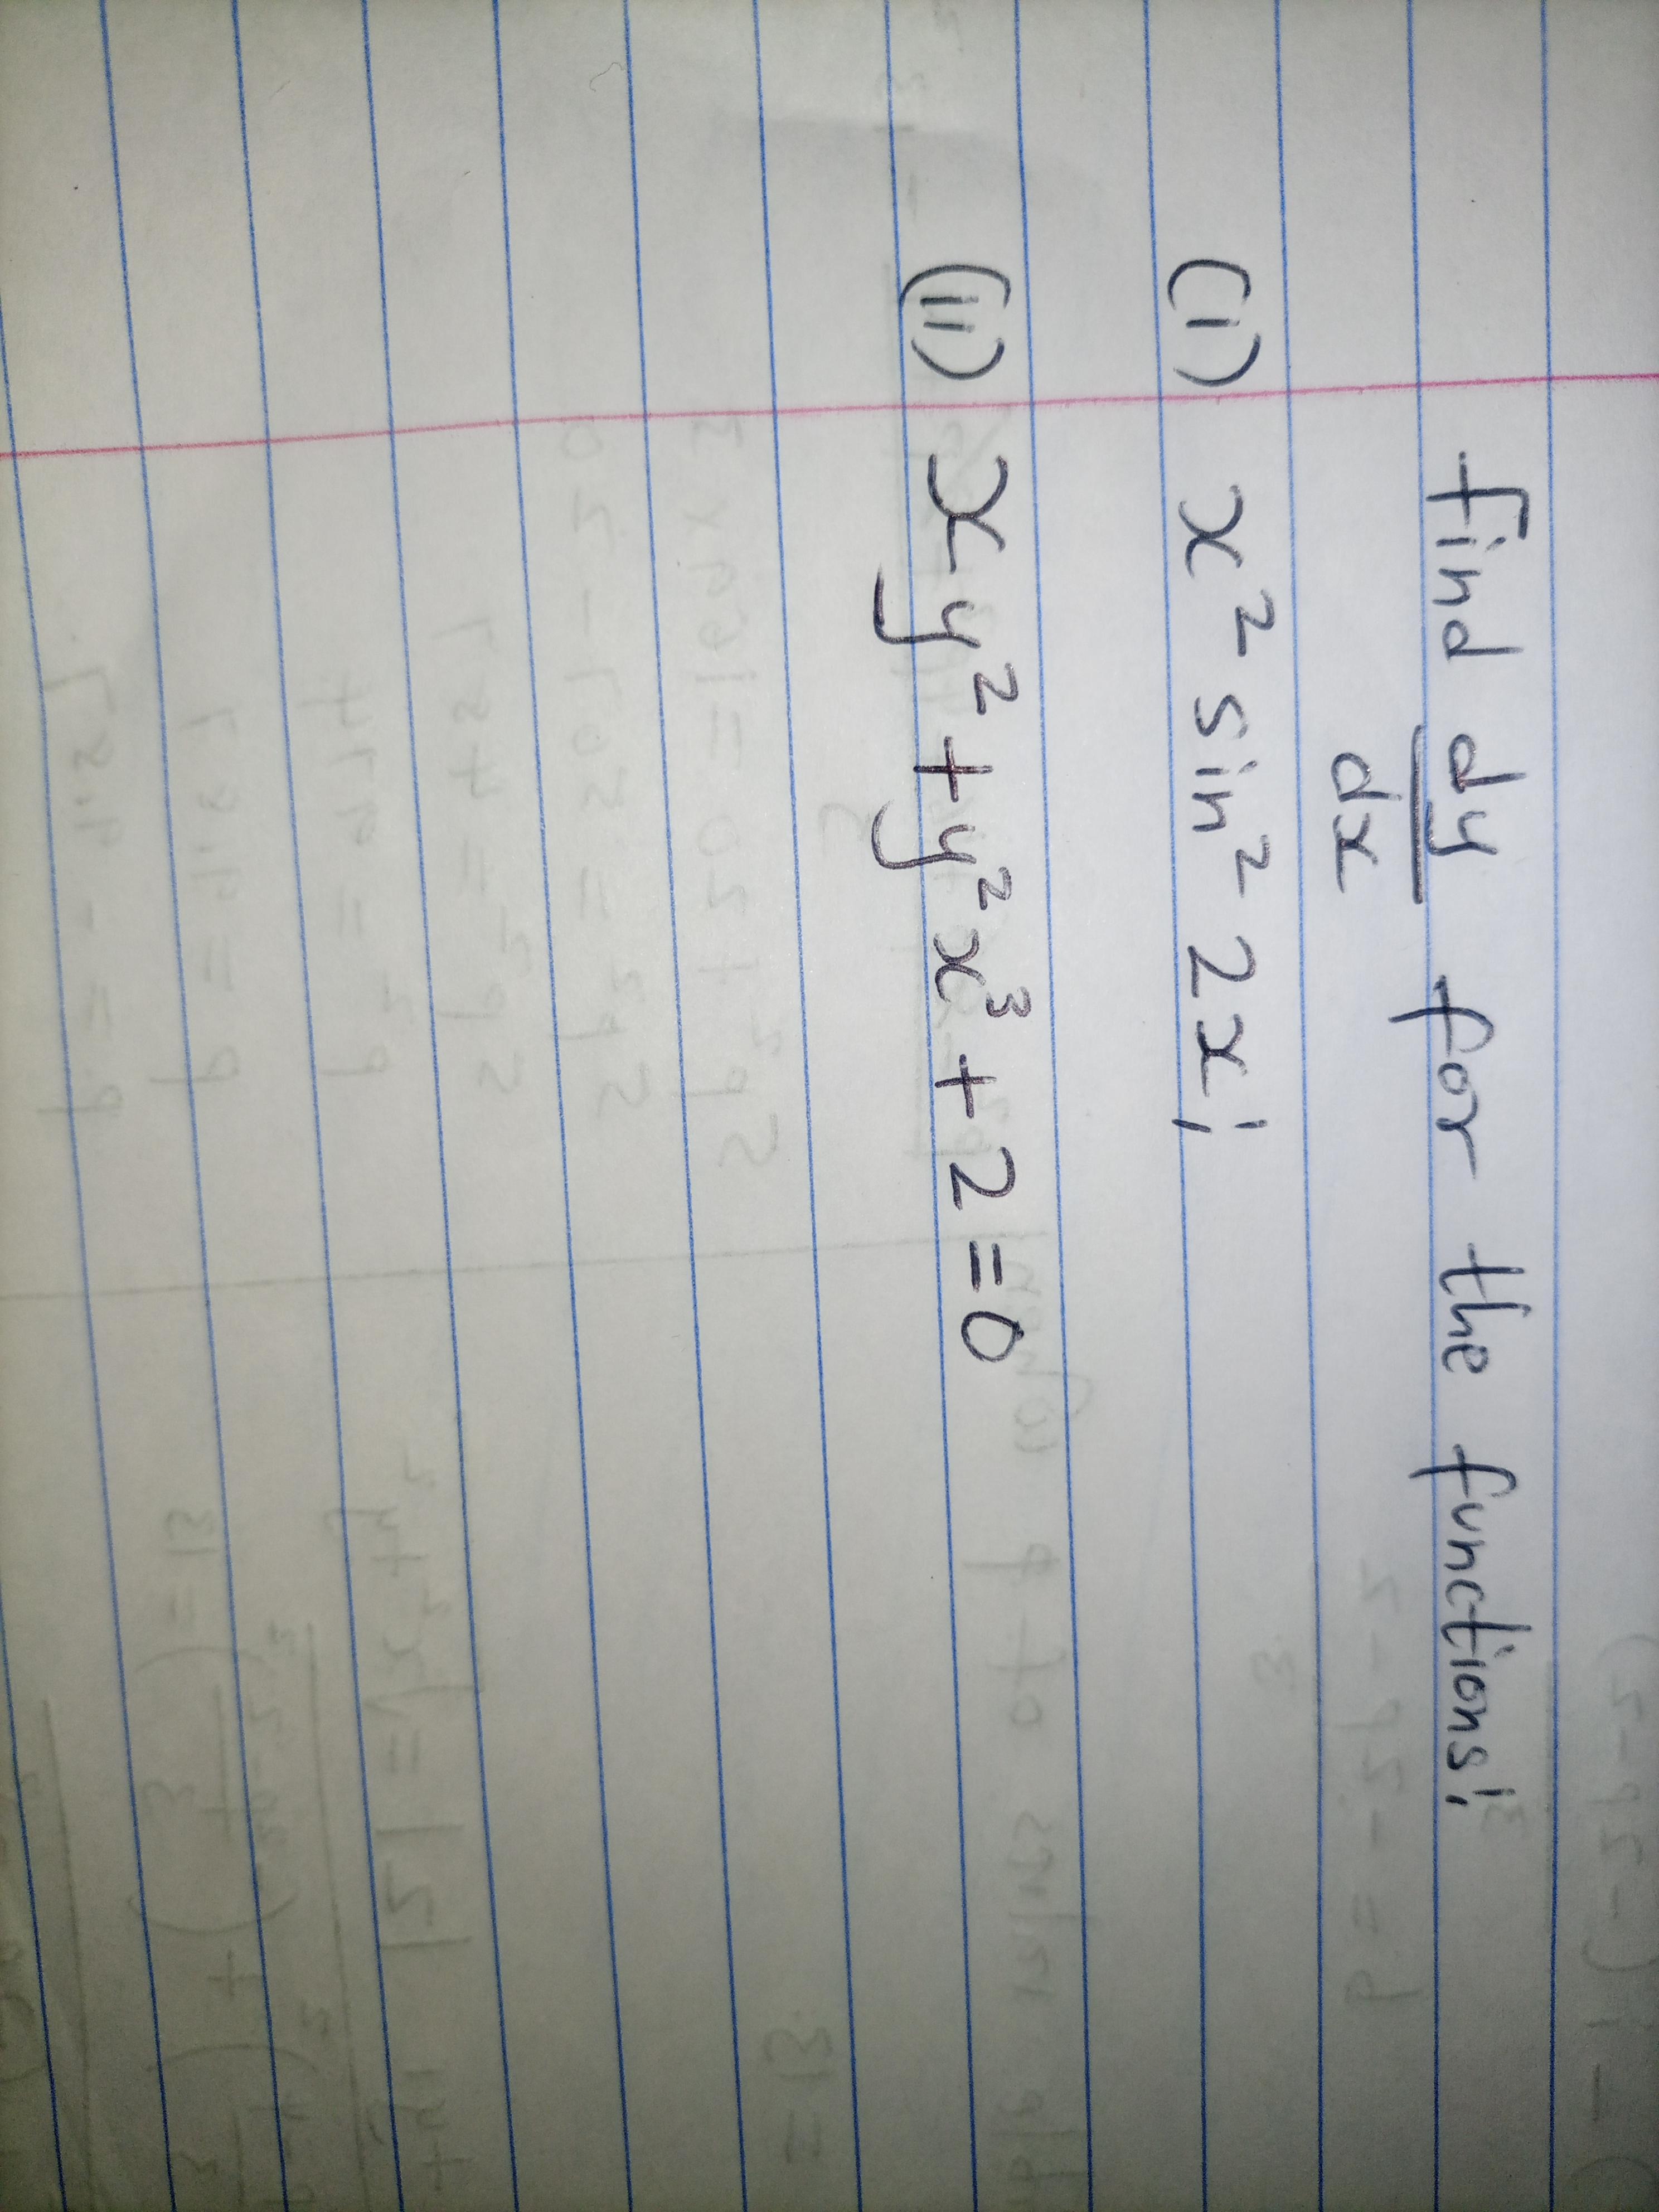 Find dy for the functions;
dx
(i) x² sin² 2x;
(ii) xy² + y²x³ + 2 = 0